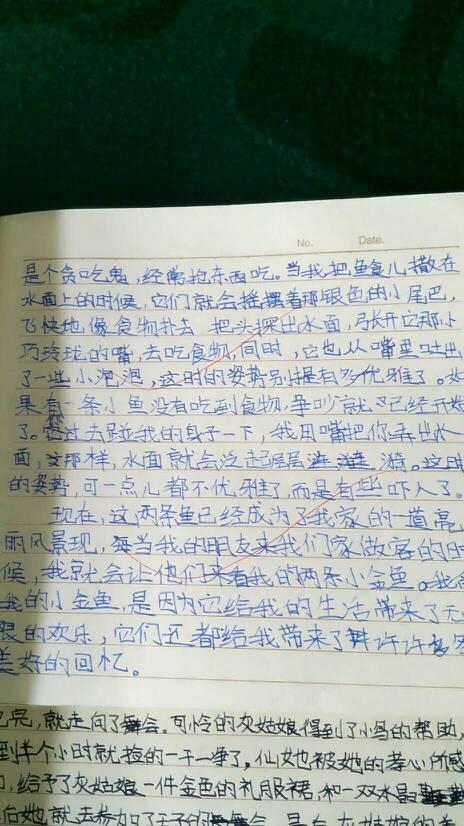 No. Date.
是个贪吃鬼，经常抱东西吃。当我把鱼食儿撒在
水面上的时候，它们就会摇摆着那银色的小尾巴，
飞快地像食物扑去 把头探出水面，张开它那小
巧玲珑的嘴，去吃食物，同时，它也从嘴里吐出
了一些小泡泡，这时的姿势别提有多优雅了。如
果有一条小鱼没有吃到食物，争吵就已经开始
了。过去碰我的身子一下，我用嘴把你弄出水
面，那样，水面就会泛起层层涟漪。这时
的姿势，可一点儿都不优雅了而是有些吓人了。
现在，这两条鱼已经成为了我家的一道亮
丽风景现，每当我的朋友来我们家做客的时
候，我就会让他们来看我的两条小金鱼。我
我的小金鱼，是因为它给我的生活带来了无
限的欢乐，它们还都给我带来了许许多多
美好的回忆。
亮，就走向了舞会。可怜的灰姑娘得到了小鸟的帮助，
到半个小时就捡的一干二净了，仙女也被她的孝心所感
动，给予了灰姑娘一件金色的礼服裙，和一双水晶
她就去参加了王子的舞会